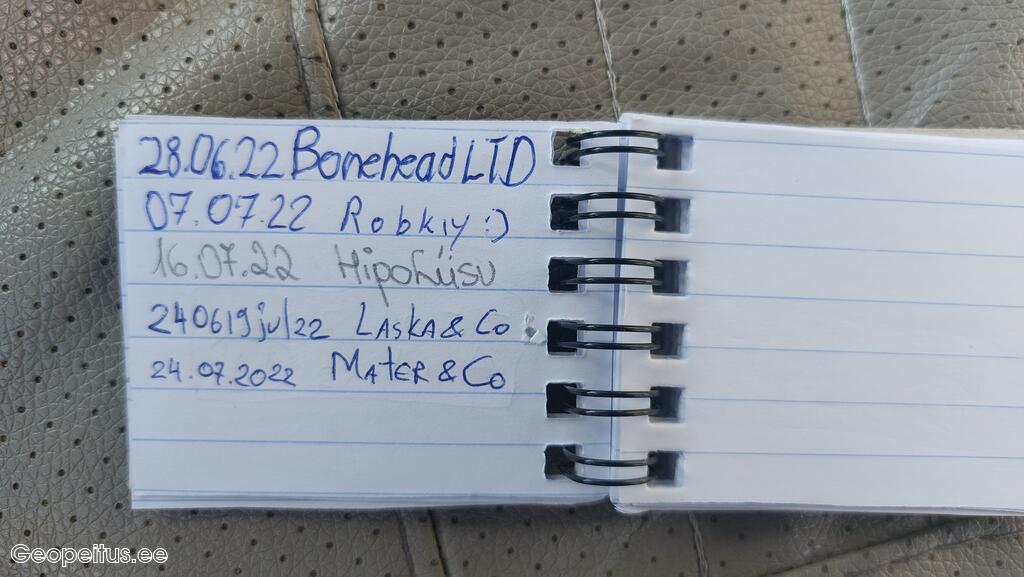 28.06.22 Bonehead LTD
07.07.22 Robkiy :)
16.07.22 Hipohüsu
240619jul22 LASKA & Co
24.07.2022 MATER & Co
Geopeitus.ee